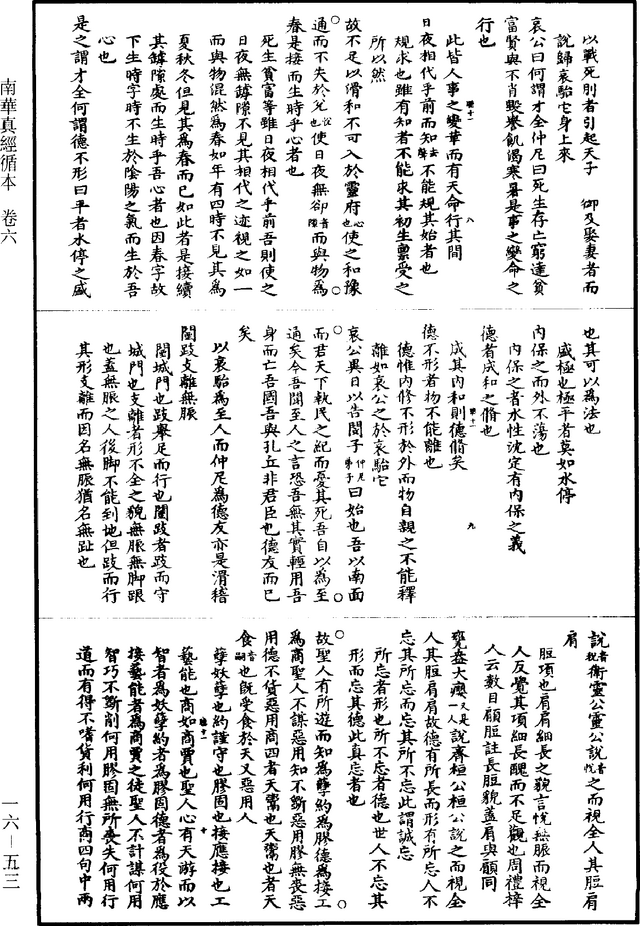 以戰死則者引起天子 御及娶妻者而
說歸哀駘它身上來
哀公曰何謂才全仲尼曰死生存亡窮達貧
富賢與不肖毀譽飢渴寒暑是事之變命之
行也
此皆人事之變華而有天命行其間
日夜相代乎前而知去聲不能規其始者也
規求也雖有知者不能求其初生禀受之
所以然
故不足以滑和不可入於靈府心也使之和豫
通而不失於兌悅也使日夜無郤音隙而與物爲
春是接而生時乎心者也
死生貧富等雖日夜相代乎前吾則使之
日夜無罅隙不見其相代之迹視之如一
而與物混然爲春如年有四時不見其爲
夏秋冬但見其爲春而已如此者是接續
其罅隙處而生時乎吾心者也因春字故
下生時字時不生於陰陽之氣而生於吾
心也
是之謂才全何謂德不形曰平者水停之盛
也其可以爲法也
盛極也極平者莫如水停
內保之而外不蕩也
內保之者水性沈定有內保之義
德者成和之脩也
成其內和則德脩矣
德不形者物不能離也
德惟內修不形於外而物自親之不能釋
離如哀公之於哀駘它
哀公異日以告閔子仲尼弟子曰始也吾以南面
而君天下執民之紀而憂其死吾自以為至
通矣今吾聞至人之言恐吾無其實輕用吾
身而亡吾國吾與孔丘非君臣也德友而已
矣
以哀駘爲至人而仲尼爲德友亦是滑稽
闉跂支離無脤
闉城門也跂舉足而行也闉跂者跂而守
城門也支離者形不全之貌無脤無脚跟
也蓋無脤之人後脚不能到地但跂而行
其形支離而因名無脤猶名無趾也
說音稅衛靈公靈公說音悅之而視全人其脰肩
肩
脰項也肩肩細長之貌言悅無脤而視全
人反覺其項細長醜而不足觀也周禮梓
人云數目顅脰註長脰貌蓋肩與顅同
甕㼜大癭又是一人說齊桓公桓公說之而視全
人其脰肩肩故德有所長而形有所忘人不
忘其所忘而忘其所不忘此謂誠忘
所忘者形也所不忘者德也世人不忘其
形而忘其德此真忘者也
故聖人有所遊而知爲孽約爲膠德爲接工
爲商聖人不謀惡用知不斲惡用膠無喪惡
用德不貨惡用商四者天鬻也天鬻也者天
食音嗣也既受食於天又惡用人
孽妖孽也約謹守也膠固也接應接也工
藝能也商如商賈也聖人心有天游而以
智者爲妖孽約者爲膠固德者爲役於應
接藝能者爲商賈之徒聖人不計謀何用
智巧不斲削何用膠固無所喪失何用行
道而有得不嗜貨利何用行商四句中兩
南華真經循本 卷六
一六－五三